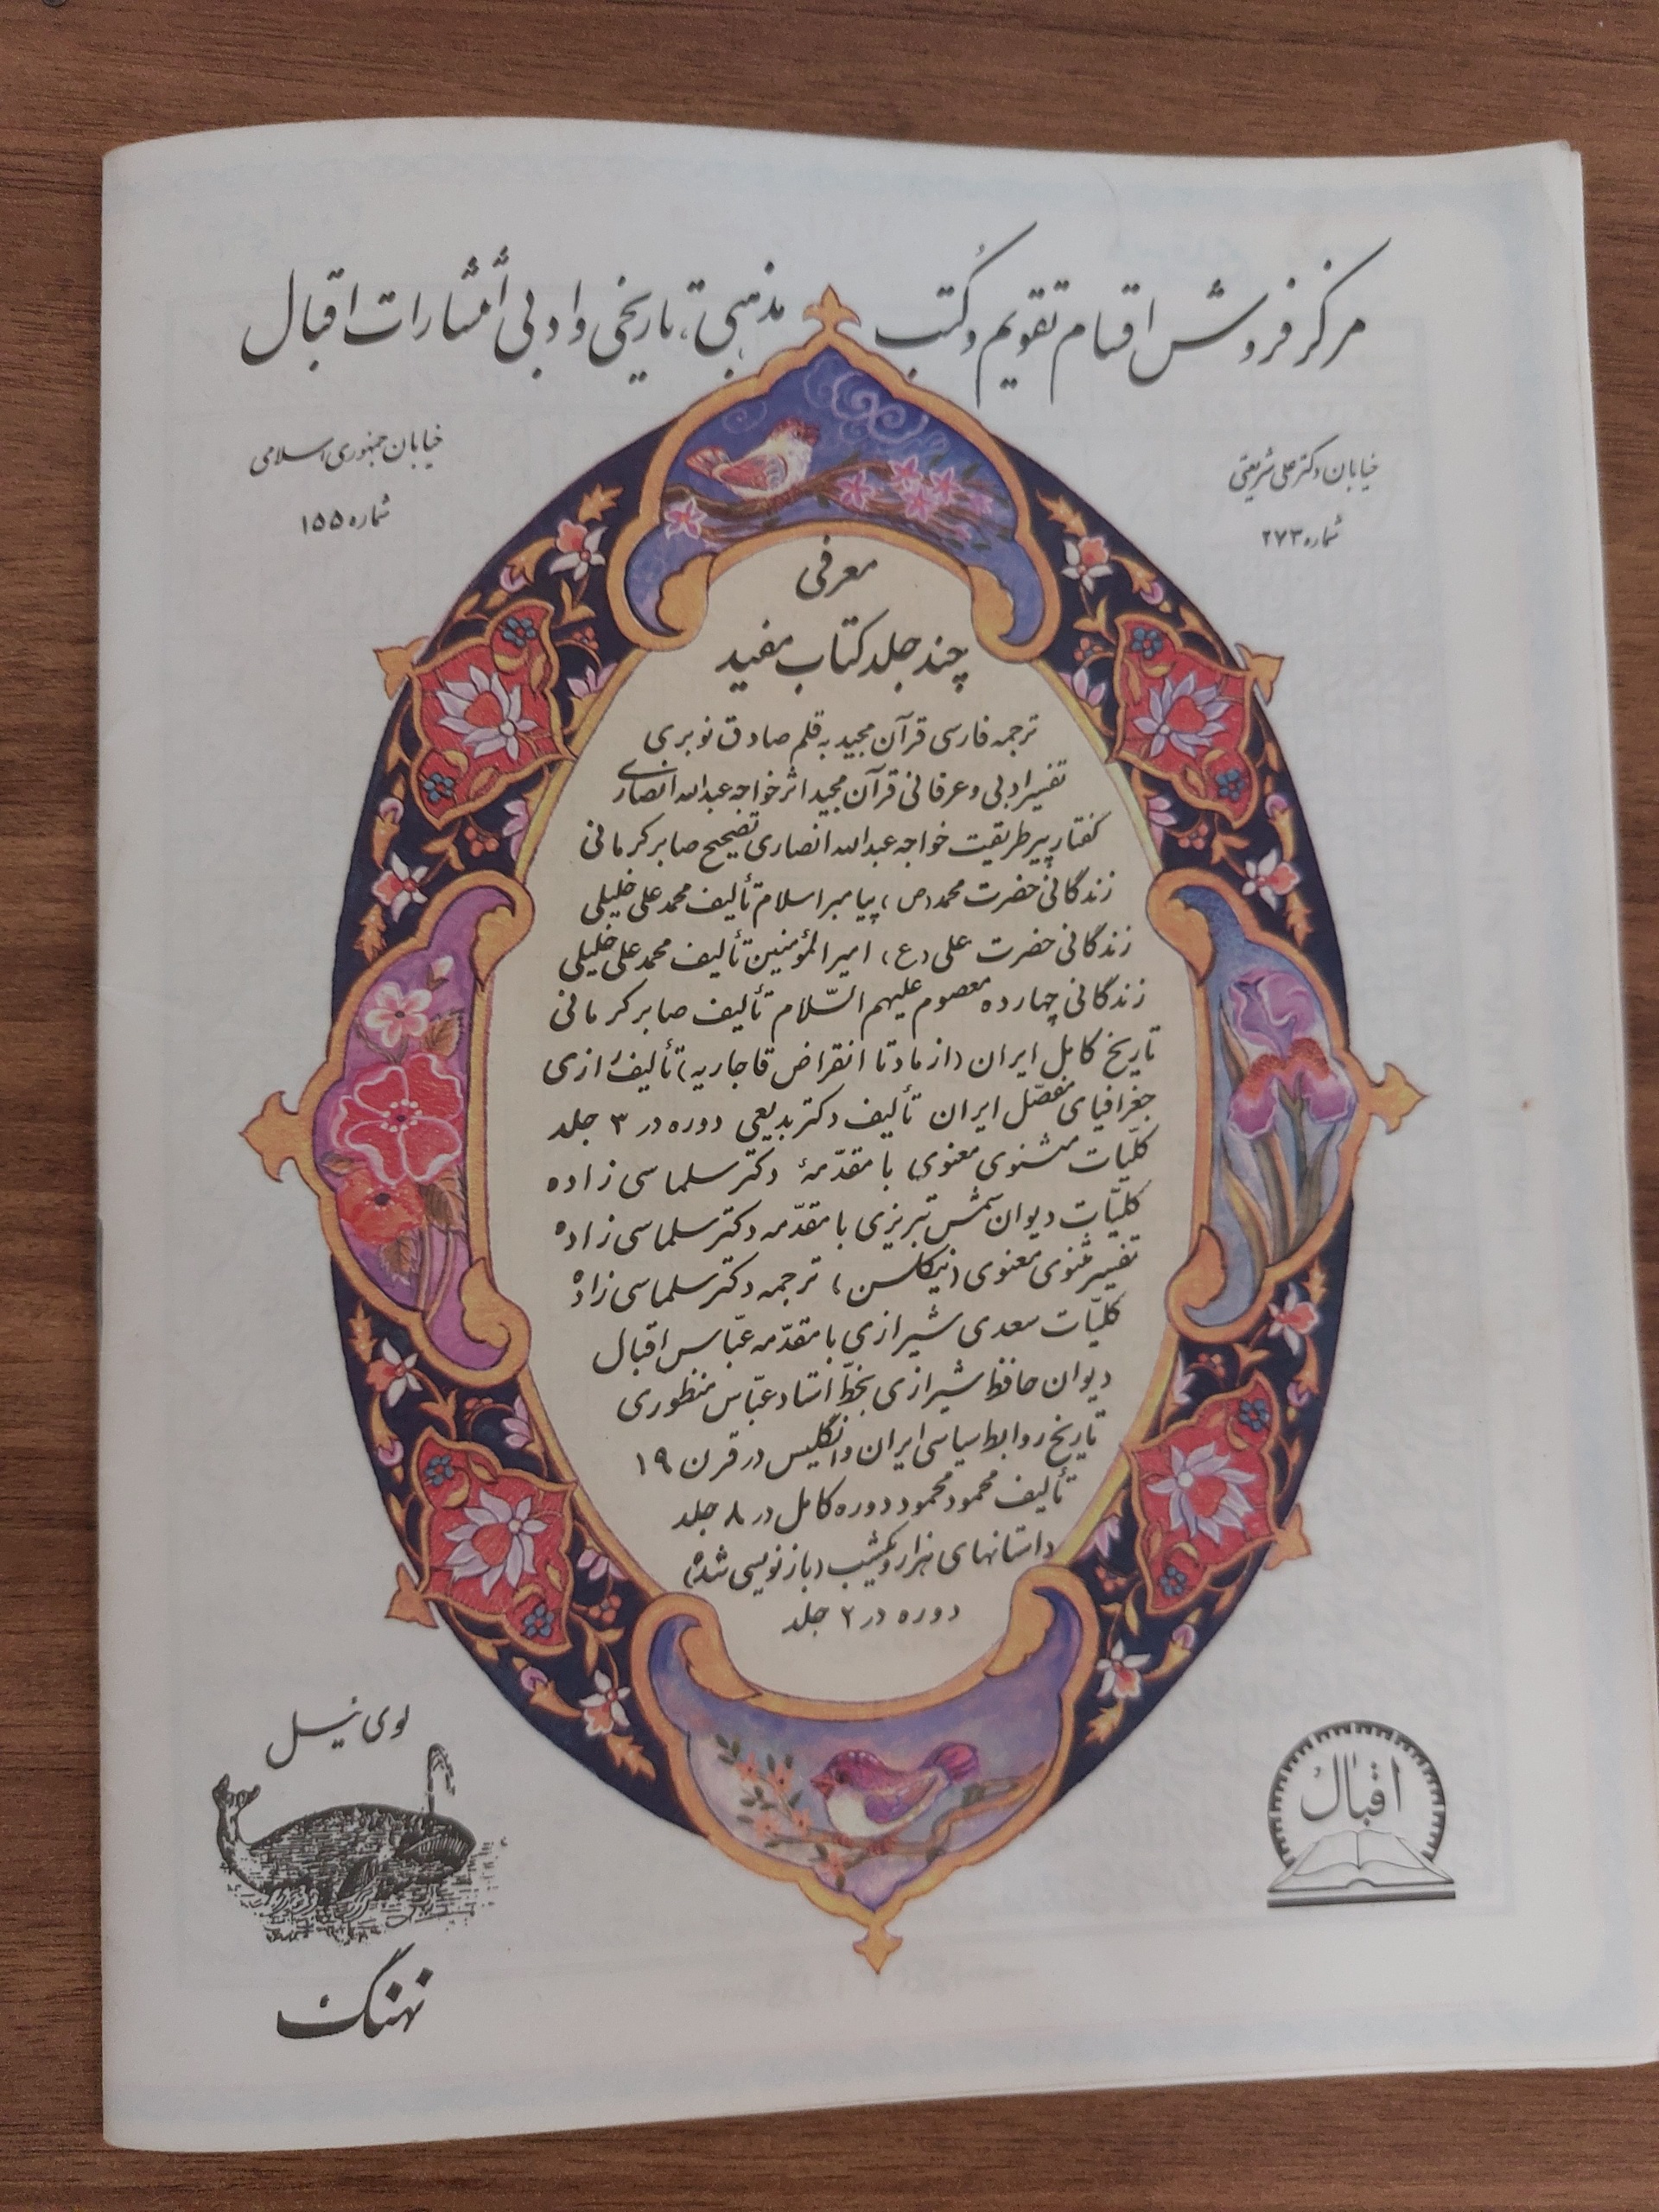 مرکز فروش اقسام تقویم و کتب مذهبی، تاریخی و ادبی انتشارات اقبال
خیابان دکتر علی شریعتی
شماره ۲۷۳
خیابان جمهوری اسلامی
شماره ۱۵۵
معرفی
چند جلد کتاب مفید
ترجمه فارسی قرآن مجید به قلم صادق نوبری
تفسیر ادبی و عرفانی قرآن مجید اثر خواجه عبدالله انصاری
گفتار پیر طریقت خواجه عبدالله انصاری تصحیح صابر کرمانی
زندگانی حضرت محمد (ص) پیامبر اسلام تألیف محمد علی خلیلی
زندگانی حضرت علی (ع) امیرالمؤمنین تألیف محمد علی خلیلی
زندگانی چهارده معصوم علیهم السّلام تألیف صابر کرمانی
تاریخ کامل ایران (از ماد تا انقراض قاجاریه) تألیف رازی
جغرافیای مفصّل ایران تألیف دکتر بدیعی دوره در ۳ جلد
کلّیات مثنوی معنوی با مقدّمۀ دکتر سلماسی زاده
کلیّات دیوان شمس تبریزی با مقدّمه دکتر سلماسی زاده
تفسیر مثنوی معنوی (نیکلسن) ترجمه دکتر سلماسی زاده
کلیّات سعدی شیرازی با مقدّمه عبّاس اقبال
دیوان حافظ شیرازی بخطّ استاد عبّاس منظوری
تاریخ روابط سیاسی ایران و انگلیس در قرن ۱۹
تألیف محمود محمود دوره کامل در ۸ جلد
داستانهای هزار و یکشب (بازنویسی شده)
دوره در ۲ جلد
لوی ئیل
نهنگ
اقبال